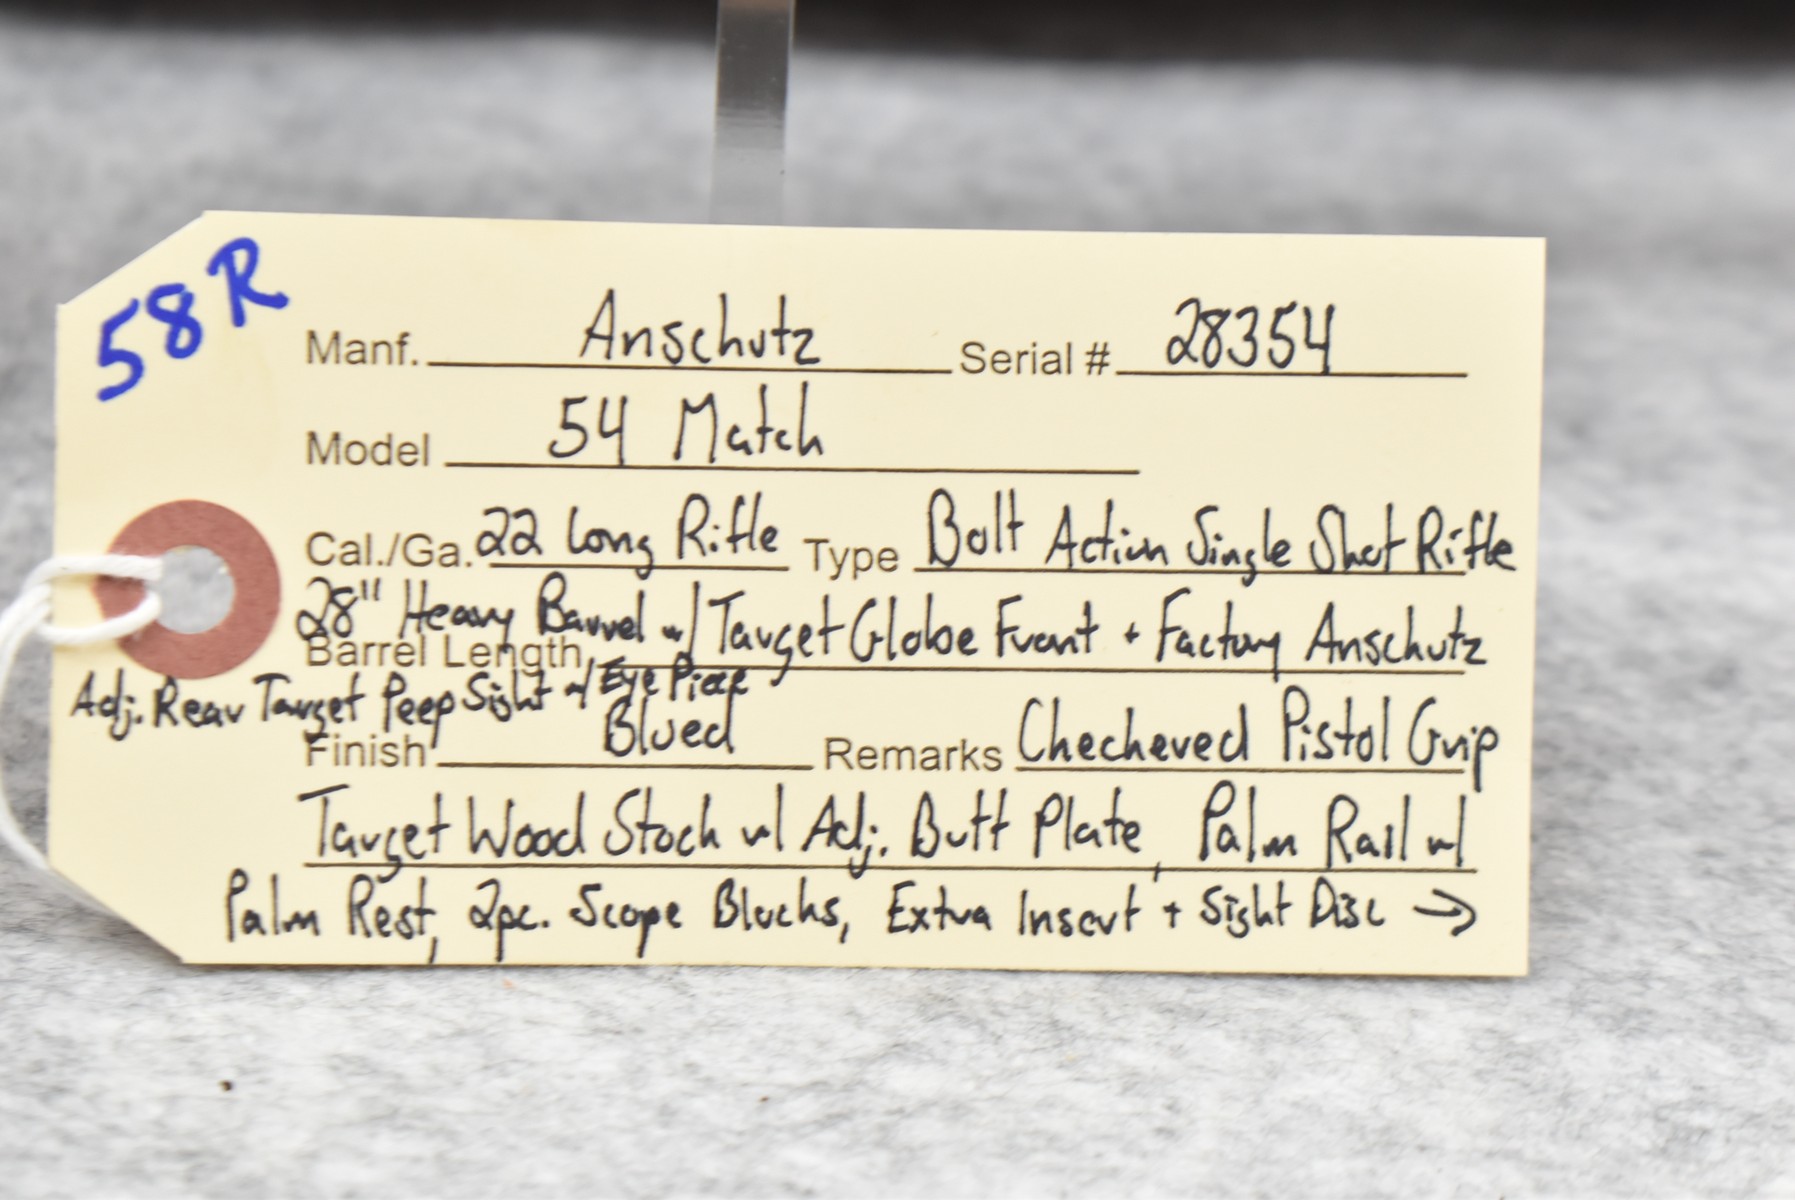 58R
Manf. Anschutz Serial # 28354
Model 54 Match
Cal./Ga. 22 Long Rifle Type Bolt Action Single Shot Rifle
28" Heavy Barrel w/ Target Globe Front + Factory Anschutz
Barrel Length
Adj. Rear Target Peep Sight w/ Eye Piece
Finish Blued Remarks Checkered Pistol Grip
Target Wood Stock w/ Adj. Butt Plate, Palm Rail w/
Palm Rest, 2pc. Scope Blocks, Extra Insert + Sight Disc →